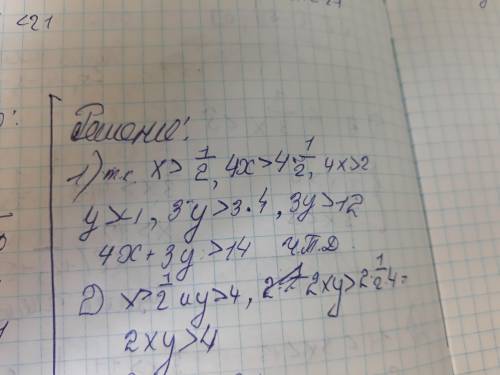 <21
Решение:
1) т.к. x > 1/2, 4x > 4·1/2, 4x > 2
y > 1, 3·y > 3·4, 3y > 12
4x + 3y > 14 Ч.Т.Д.
2) x > 1/2 и y > 4, 2xy > 2·1/2·4 =
2xy > 4